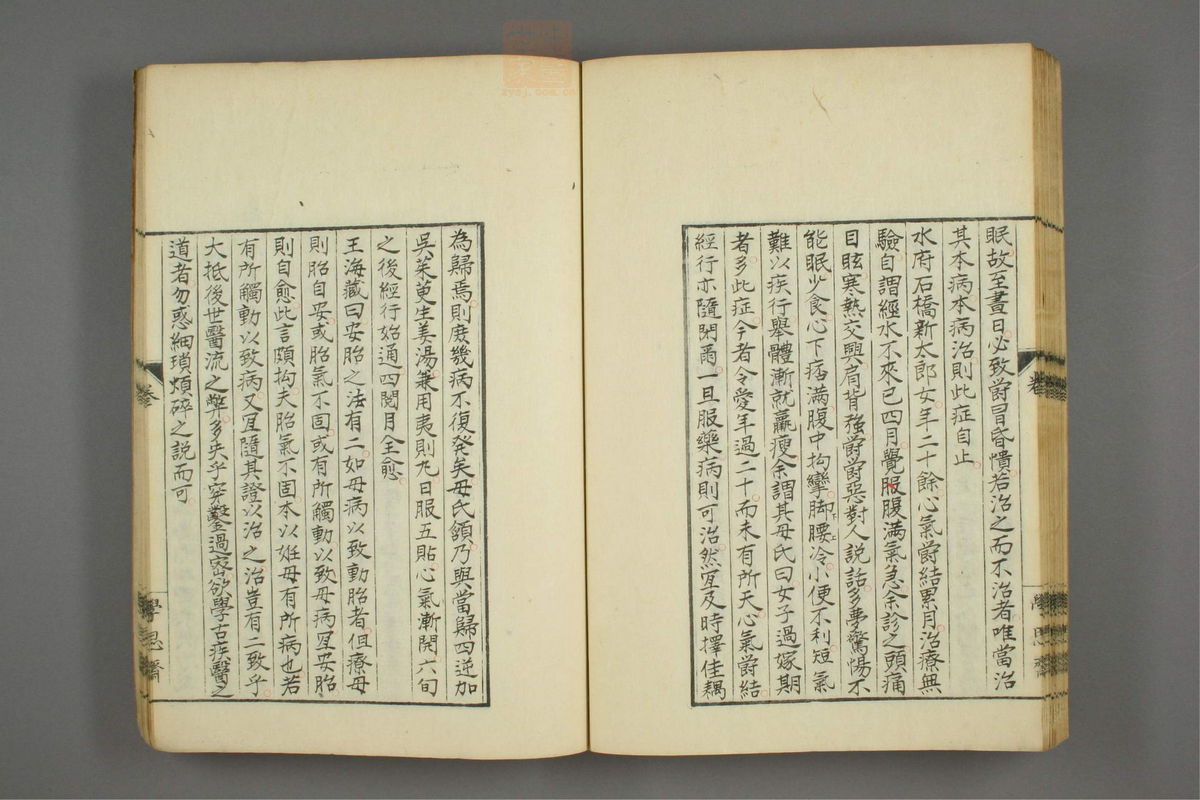 眠故至晝日必致欝冒昏憒若治之而不治者唯當治
其本病本病治則此症自止
水府石橋新太郎女年二十餘心氣欝結累月治療無
驗自謂經水不來已四月覺服腹滿氣急余診之頭痛
目眩寒熱交興肩背強欝欝惡對人説話多夢驚惕不
能眠少食心下痞滿腹中拘攣脚腰冷小便不利短氣
難以疾行舉體漸就羸瘦余謂其母氏曰女子過嫁期
者多此症今者令愛年過二十而未有所天心氣欝結
經行亦隨閉爾一旦服藥病則可治然宜及時擇佳耦
為歸焉則庶幾病不復發矣母氏頷乃與當歸四逆加
吳茱萸生姜湯兼用夷則丸日服五貼心氣漸開六旬
之後經行始通四閱月全愈
王海藏曰安胎之法有二如母病以致動胎者但療母
則胎自安或胎氣不固或有所觸動以致母病宜安胎
則自愈此言頗拘夫胎氣不固本以妊母有所病也若
有所觸動以致病又宜隨其證以治之治豈有二致乎
大抵後世醫流之弊多失乎穿鑿過密欲學古疾醫之
道者勿惑細瑣煩碎之説而可
卷
學思齋